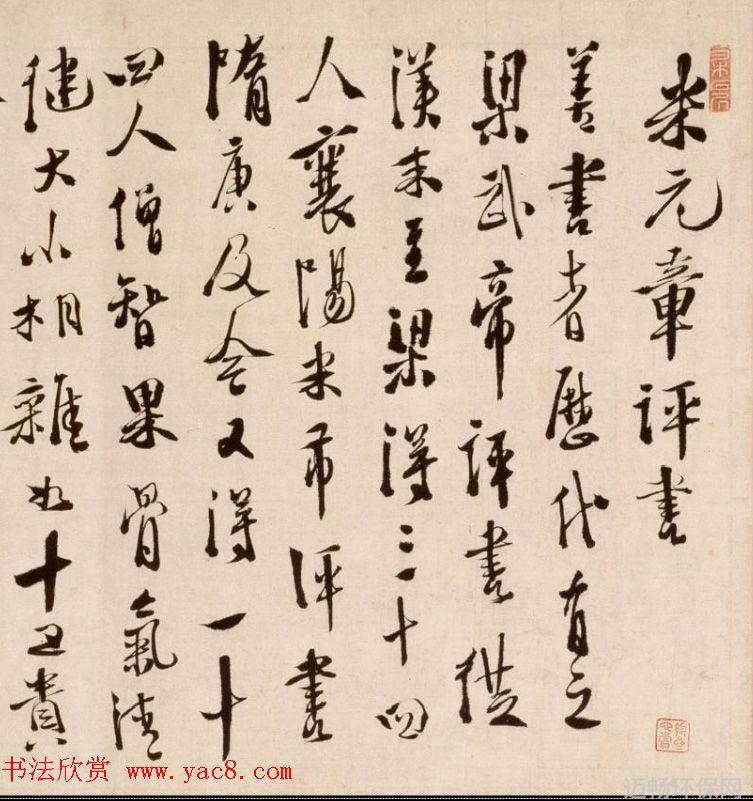 米元章評書
善書者歷代有之
梁武帝評書從
漢末至梁得三十四
人襄陽米芾評書
隋唐及今又得一十
四人僧智果骨氣清
健大小相雜如十五貴
书法欣赏 www.yac8.com
迈畅环保网